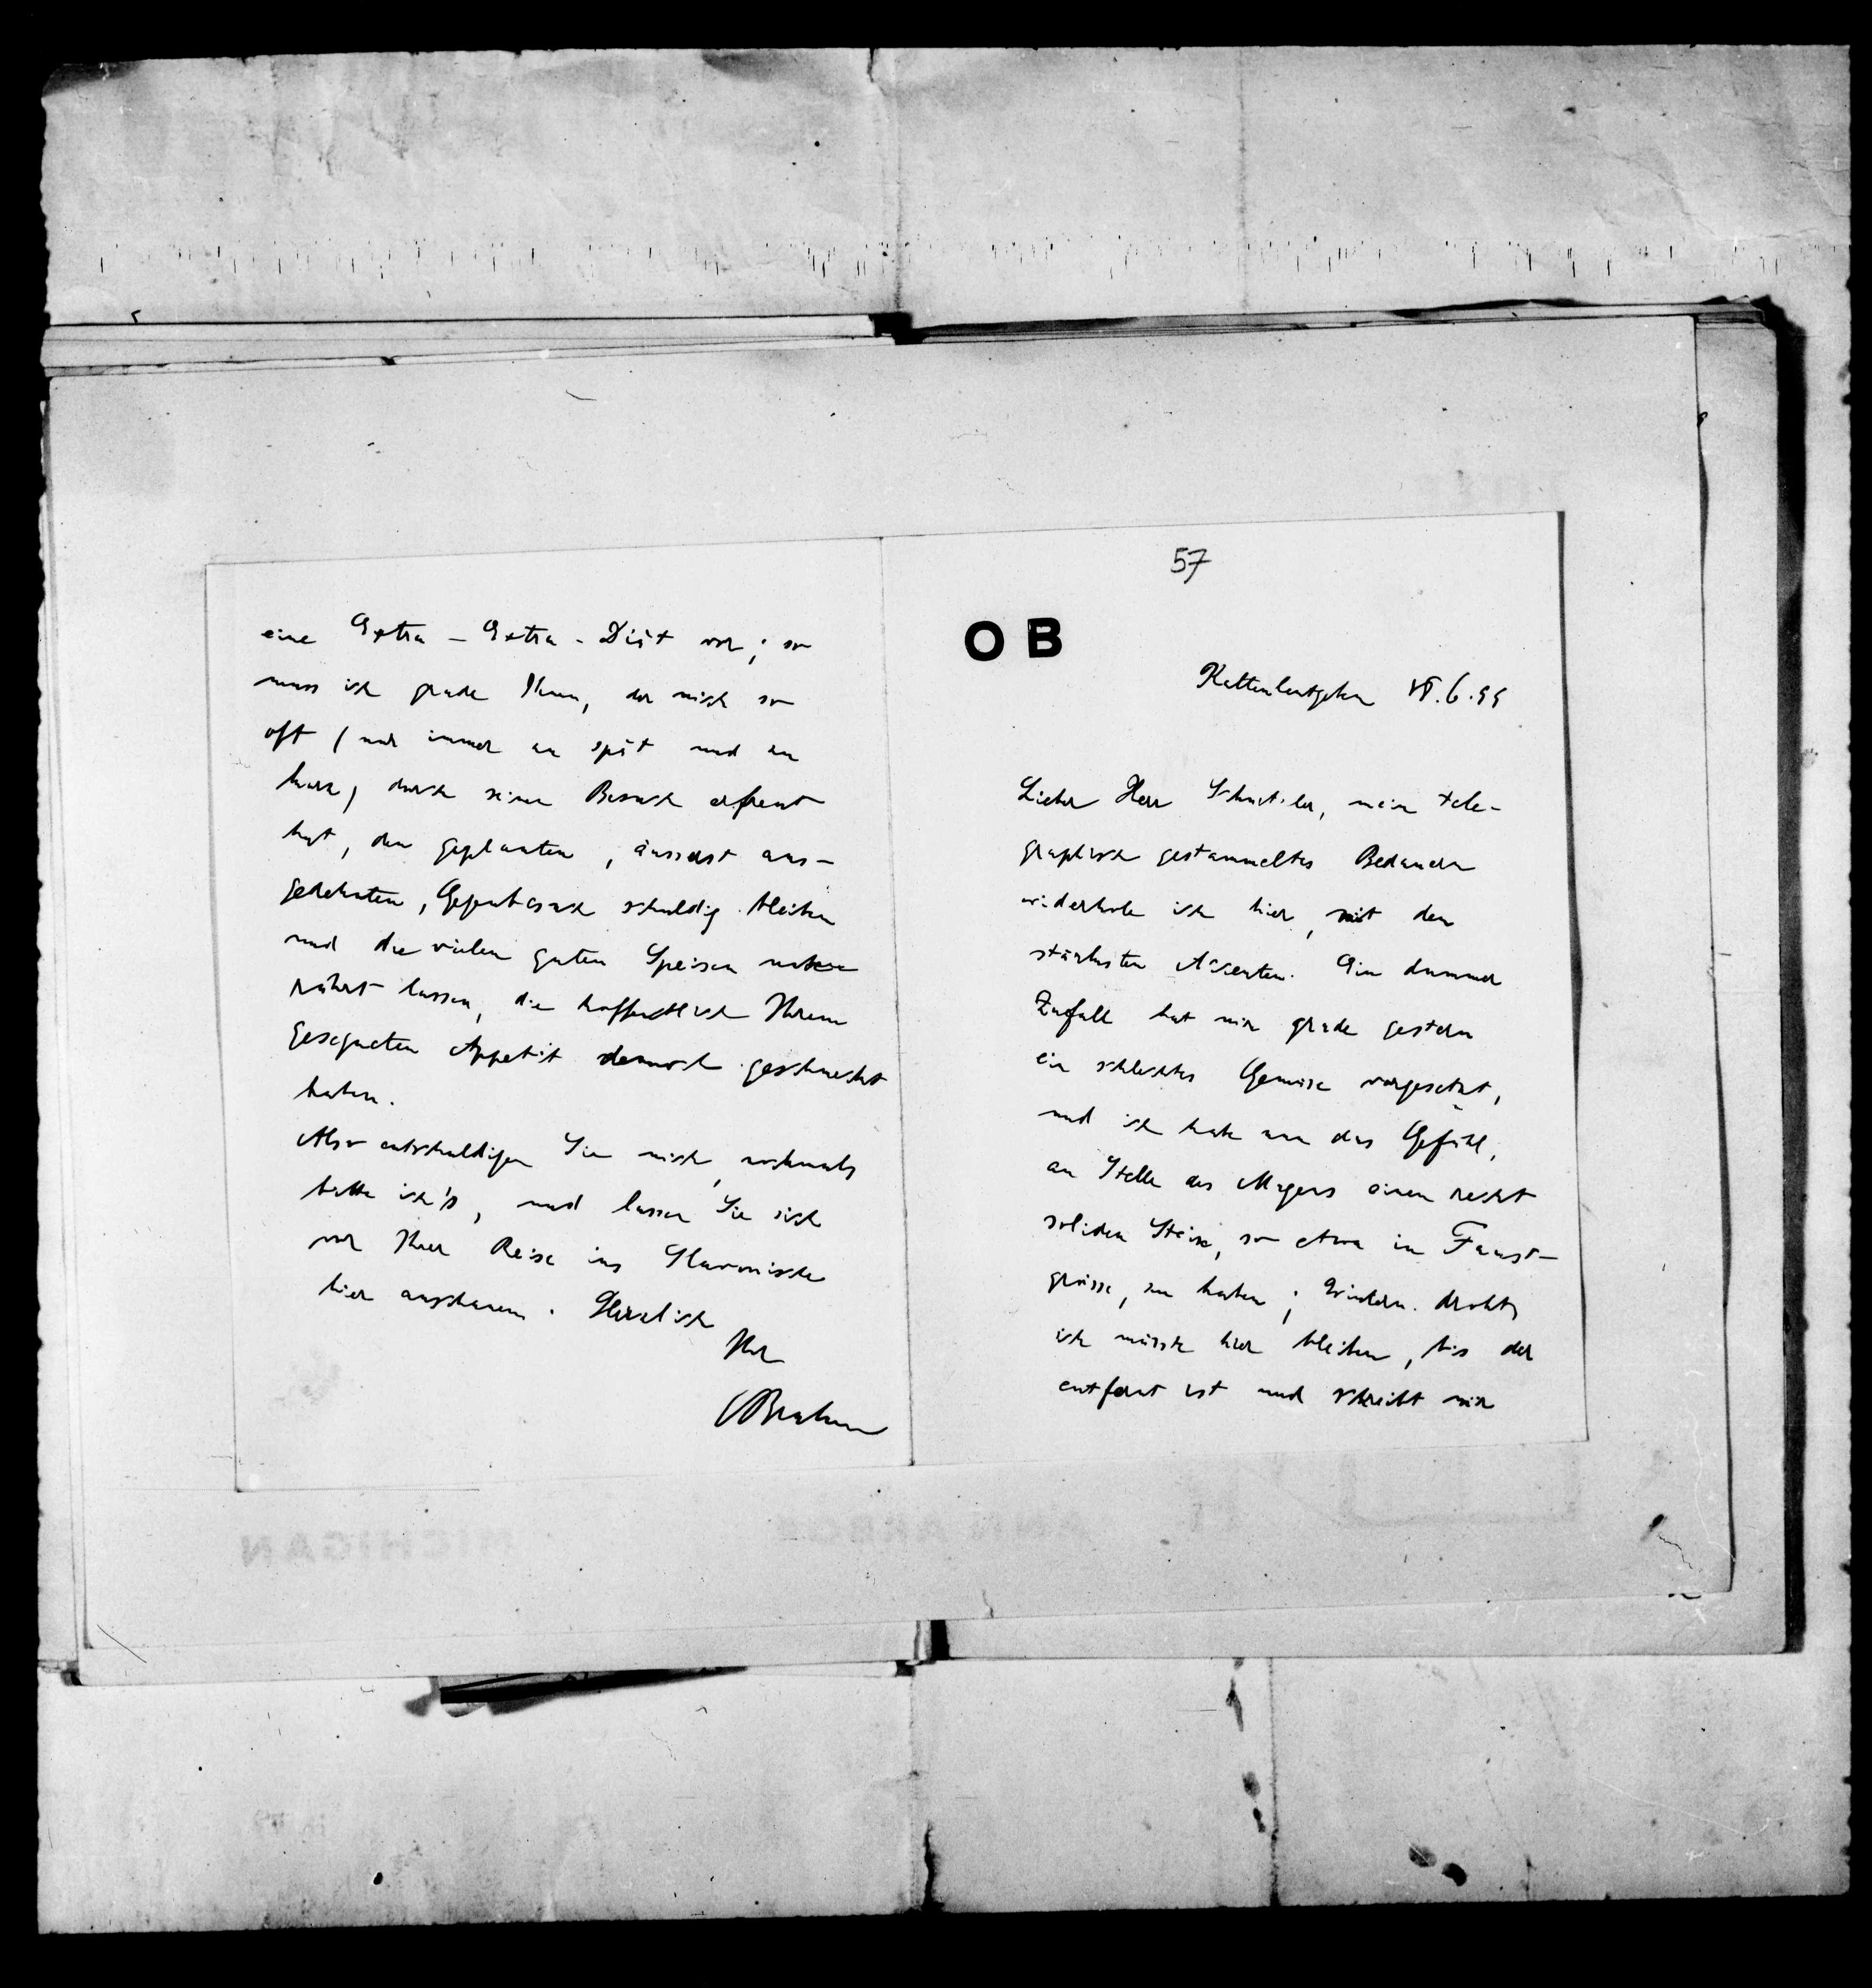 57
OB
Kaltenleutgeben
Lieber Herr Schnitzler, mein tele-
graphisch gestammeltes Bedauern
widerhole ich hier, mit den
stärksten Accenten. Ein dummer
Zufall hat mir grade gestern
ein schlechtes Gemüse vorgesetzt,
und ich habe nun das Gefühl,
an Stelle des Magens einen recht
soliden Stein, so etwa in Faust-
grösse, zu haben; Wintern. droht,
ich müsste hier bleiben, bis der
entfernt ist und schreibt mir
eine Extra-Extra-Diät vor; so
muss ich grade Ihnen, der mich so
oft (nur immer zu spät und zu
kurz) durch seinen Besuch erfreut
hat, den geplanten, äusserst aus-
gedehnten, Gegenbesuch schuldig bleiben
und die vielen guten Speisen unbe
rührt lassen, die hoffentlich Ihrem
gesegneten Appetit dennoch geschmeckt
haben.
Also entschuldigen Sie mich, nochmals
bitte ich's, und lassen Sie sich
vor Ihrer Reise ins Slavonische
hier anschauen. Herzlich
Ihr
OBrahm
MICHIGAN
ANN ARBOR